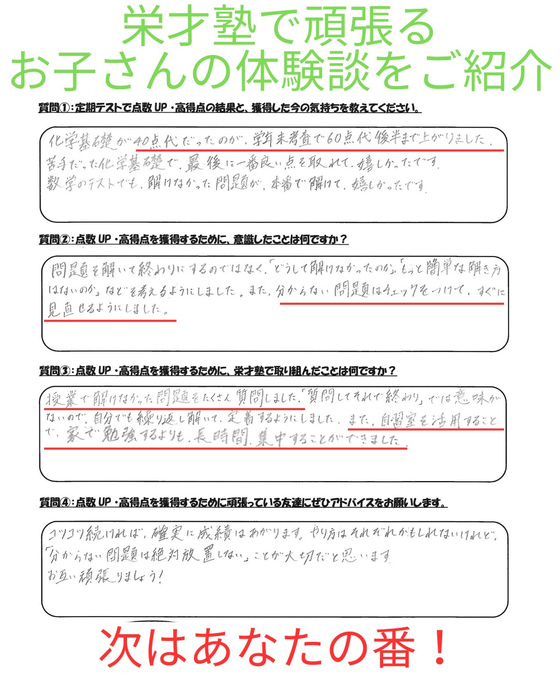 栄才塾で頑張る
お子さんの体験談をご紹介
質問①：定期テストで点数UP・高得点の結果と、獲得した今の気持ちを教えてください。
化学基礎が40点代だったのが、学年末考査で60点代後半まで上がりました。
苦手だった化学基礎で、最後に一番良い点を取れて、嬉しかったです。
数学のテストでも、解けなかった問題が、本番で解けて、嬉しかったです。
質問②：点数UP・高得点を獲得するために、意識したことは何ですか？
問題を解いて終わりにするのではなく、「どうして解けなかったのか」「もっと簡単な解き方
はないのか」などを考えるようにしました。また、分からない問題はチェックをつけて、すぐに
見直せるようにしました。
質問③：点数UP・高得点を獲得するために、栄才塾で取り組んだことは何ですか？
授業で解けなかった問題をたくさん質問しました。「質問してそれで終わり」では意味が
ないので、自分でも繰り返し解いて、定着するようにしました。また、自習室を活用すること
で、家で勉強するよりも、長時間、集中することができました。
質問④：点数UP・高得点を獲得するために頑張っている友達にぜひアドバイスをお願いします。
コツコツ続ければ、確実に成績はあがります。やり方はそれぞれかもしれないけれど、
「分からない問題は絶対放置しない」ことが大切だと思います
お互い頑張りましょう！
次はあなたの番！